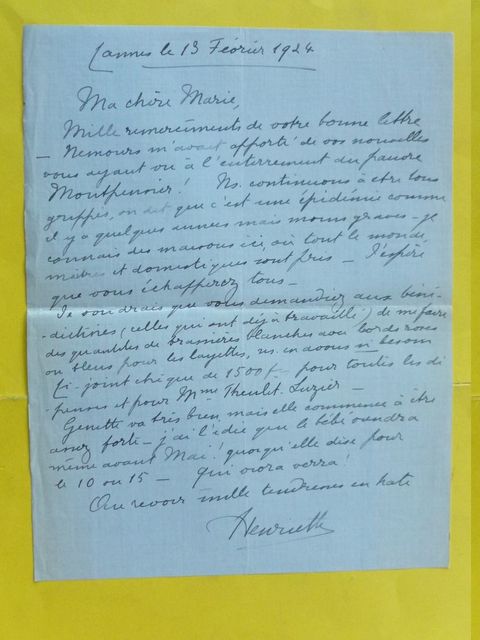 Cannes le 13 Février 1924
Ma chère Marie,
Mille remerciements de votre bonne lettre
– Nemours m'avait apporté de vos nouvelles
vous ayant vu à l'enterrement du pauvre
Montpensier! Ns. continuons à être tous
grippés, on dit que c'est une épidémie comme
il y a quelques années mais moins grave – je
connais des maisons ici, où tout le monde,
maîtres et domestiques sont pris – J'espère
que vous échapperez tous –
Je voudrais que vous demandiez aux béné-
-dictines (celles qui ont déjà travaillé) de me faire
des quantités de brassières blanches avec bords roses
ou bleus pour les layettes, ns. en avons si besoin
Ci-joint chèque de 1500 f – pour toutes les dé
penses et pour Mme Theulet-Luzier –
Genette va très bien, mais elle commence à être
assez forte – j'ai l'idée que le bébé viendra
même avant Mai! quoiqu'elle dise pour
le 10 ou 15 – qui vivra verra!
Au revoir mille tendresses en hâte
Henriette